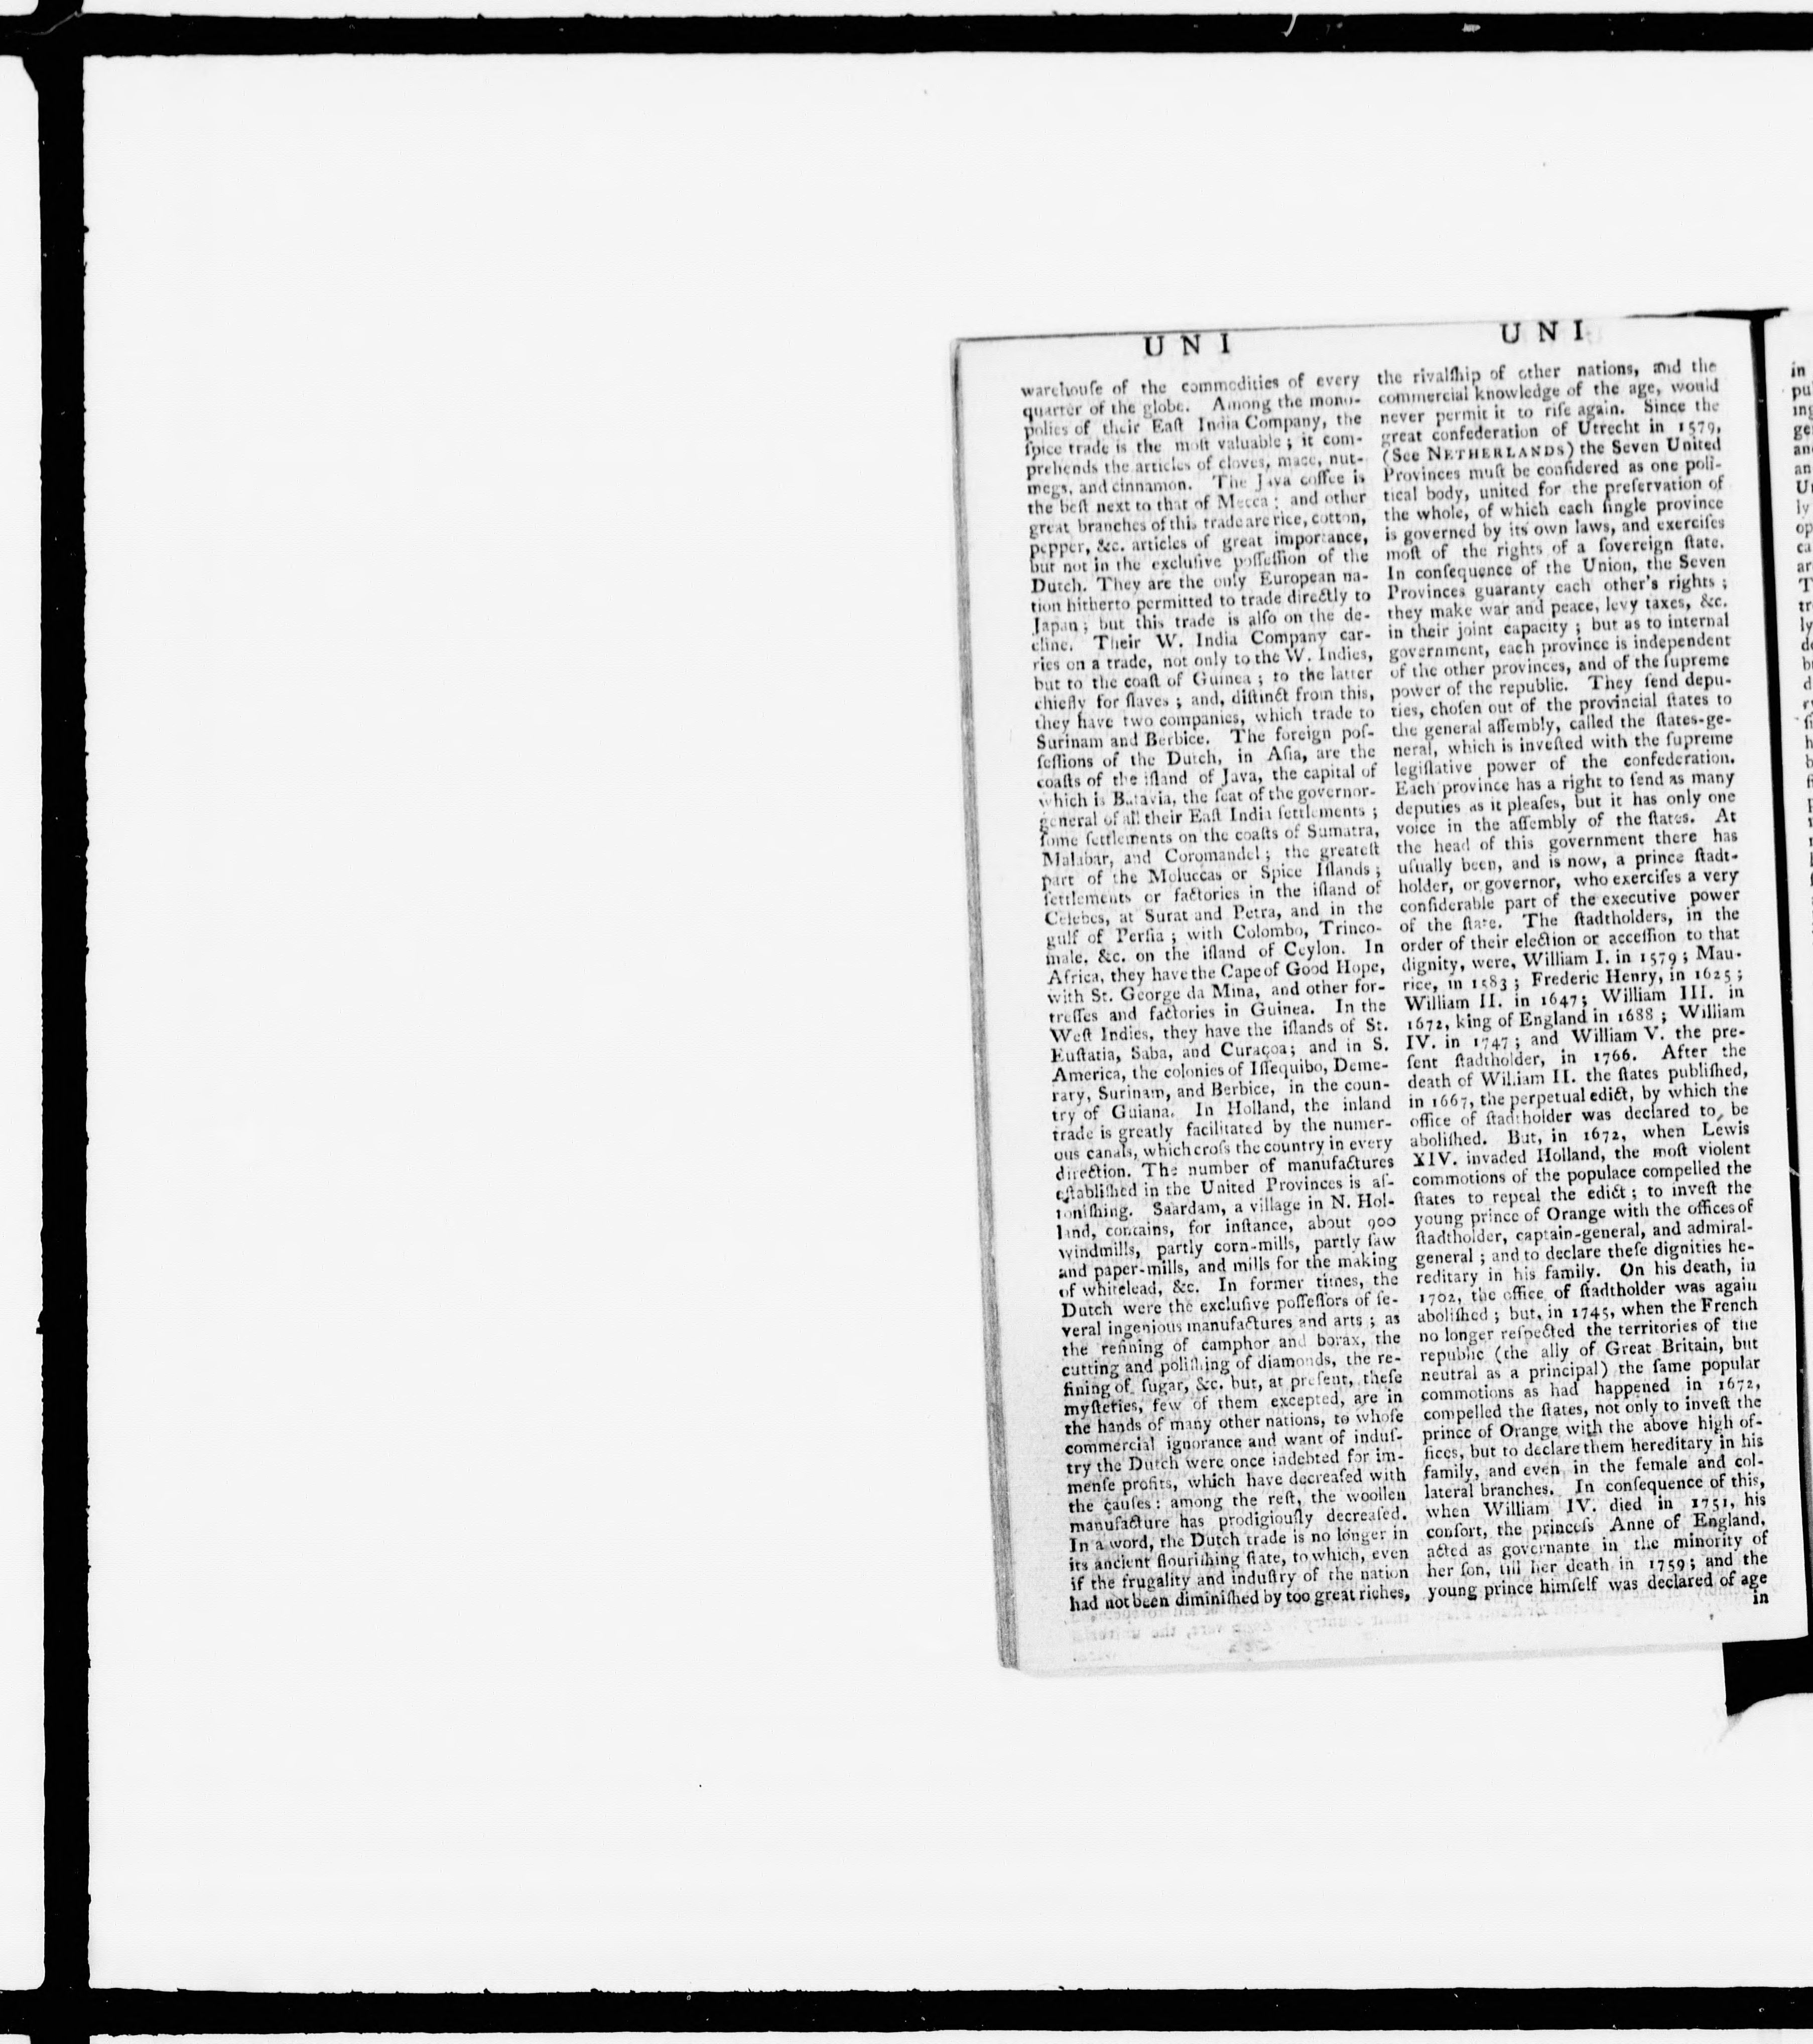 U N I
warehouſe of the commodities of every
quarter of the globe. Among the mono-
polies of their Eaſt India Company, the
ſpice trade is the moſt valuable; it com-
prehends the articles of cloves, mace, nut-
megs, and cinnamon. The Java coffee is
the beſt next to that of Mecca: and other
great branches of this trade are rice, cotton,
pepper, &c. articles of great importance,
but not in the excluſive poſſeſſion of the
Dutch. They are the only European na-
tion hitherto permitted to trade directly to
Japan; but this trade is alſo on the de-
cline. Their W. India Company car-
ries on a trade, not only to the W. Indies,
but to the coaſt of Guinea; to the latter
chiefly for ſlaves; and, diſtinct from this,
they have two companies, which trade to
Surinam and Berbice. The foreign poſ-
ſeſſions of the Dutch, in Aſia, are the
coaſts of the iſland of Java, the capital of
which is Batavia, the ſeat of the governor-
general of all their Eaſt India ſettlements;
ſome ſettlements on the coaſts of Sumatra,
Malabar, and Coromandel; the greateſt
part of the Moluccas or Spice Iſlands;
ſettlements or factories in the iſland of
Celebes, at Surat and Petra, and in the
gulf of Perſia; with Colombo, Trinco-
male, &c. on the iſland of Ceylon. In
Africa, they have the Cape of Good Hope,
with St. George da Mina, and other for-
treſſes and factories in Guinea. In the
Weſt Indies, they have the iſlands of St.
Euſtatia, Saba, and Curaçoa; and in S.
America, the colonies of Iſſequibo, Deme-
rary, Surinam, and Berbice, in the coun-
try of Guiana. In Holland, the inland
trade is greatly facilitated by the numer-
ous canals, which croſs the country in every
direction. The number of manufactures
eſtabliſhed in the United Provinces is aſ-
toniſhing. Saardam, a village in N. Hol-
land, contains, for inſtance, about 900
windmills, partly corn-mills, partly ſaw
and paper-mills, and mills for the making
of whitelead, &c. In former times, the
Dutch were the excluſive poſſeſſors of ſe-
veral ingenious manufactures and arts; as
the refining of camphor and borax, the
cutting and poliſhing of diamonds, the re-
fining of ſugar, &c. but, at preſent, theſe
myſteries, few of them excepted, are in
the hands of many other nations, to whoſe
commercial ignorance and want of induſ-
try the Dutch were once indebted for im-
menſe profits, which have decreaſed with
the cauſes: among the reſt, the woollen
manufacture has prodigiouſly decreaſed.
In a word, the Dutch trade is no longer in
its ancient flouriſhing ſtate, to which, even
if the frugality and induſtry of the nation
had not been diminiſhed by too great riches,
U N I
the rivalſhip of other nations, and the
commercial knowledge of the age, would
never permit it to riſe again. Since the
great confederation of Utrecht in 1579,
(See NETHERLANDS) the Seven United
Provinces muſt be conſidered as one poli-
tical body, united for the preſervation of
the whole, of which each ſingle province
is governed by its own laws, and exerciſes
moſt of the rights of a ſovereign ſtate.
In conſequence of the Union, the Seven
Provinces guaranty each other's rights;
they make war and peace, levy taxes, &c.
in their joint capacity; but as to internal
government, each province is independent
of the other provinces, and of the ſupreme
power of the republic. They ſend depu-
ties, choſen out of the provincial ſtates to
the general aſſembly, called the ſtates-ge-
neral, which is inveſted with the ſupreme
legiſlative power of the confederation.
Each province has a right to ſend as many
deputies as it pleaſes, but it has only one
voice in the aſſembly of the ſtates. At
the head of this government there has
uſually been, and is now, a prince ſtadt-
holder, or governor, who exerciſes a very
conſiderable part of the executive power
of the ſtate. The ſtadtholders, in the
order of their election or acceſſion to that
dignity, were, William I. in 1579; Mau-
rice, in 1583; Frederic Henry, in 1625;
William II. in 1647; William III. in
1672, king of England in 1688; William
IV. in 1747; and William V. the pre-
ſent ſtadtholder, in 1766. After the
death of William II. the ſtates publiſhed,
in 1667, the perpetual edict, by which the
office of ſtadtholder was declared to be
aboliſhed. But, in 1672, when Lewis
XIV. invaded Holland, the moſt violent
commotions of the populace compelled the
ſtates to repeal the edict; to inveſt the
young prince of Orange with the offices of
ſtadtholder, captain-general, and admiral-
general; and to declare theſe dignities he-
reditary in his family. On his death, in
1702, the office of ſtadtholder was again
aboliſhed; but, in 1745, when the French
no longer reſpected the territories of the
republic (the ally of Great Britain, but
neutral as a principal) the ſame popular
commotions as had happened in 1672,
compelled the ſtates, not only to inveſt the
prince of Orange with the above high of-
fices, but to declare them hereditary in his
family, and even in the female and col-
lateral branches. In conſequence of this,
when William IV. died in 1751, his
conſort, the princeſs Anne of England,
acted as governante in the minority of
her ſon, till her death in 1759; and the
young prince himſelf was declared of age
in